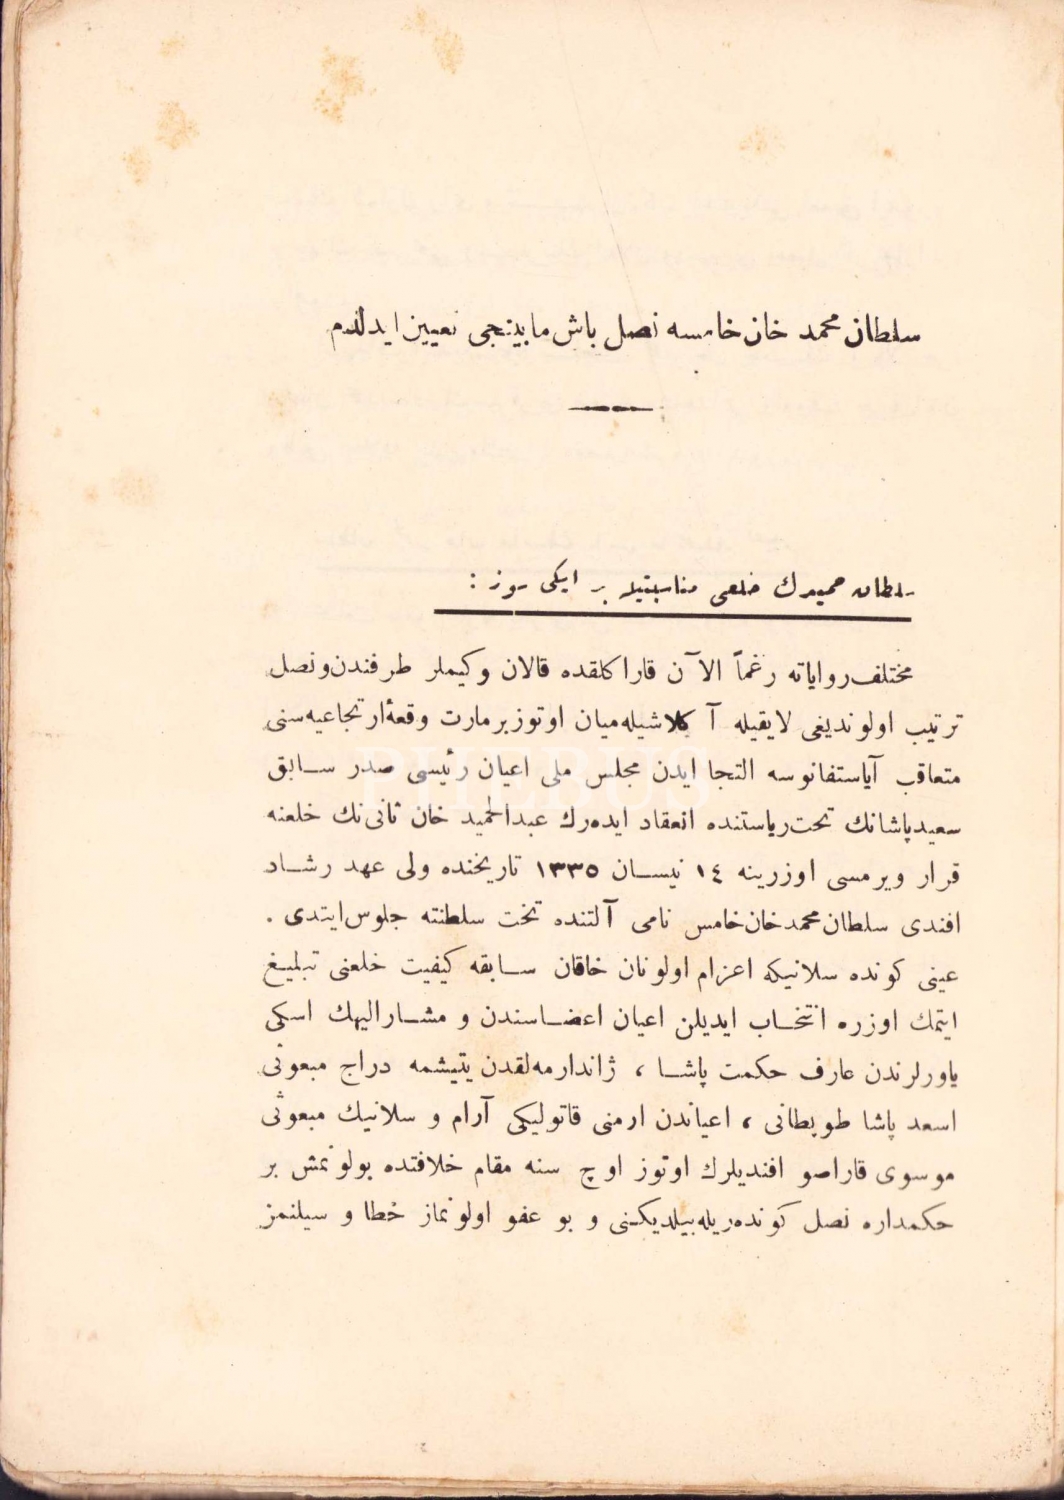 سلطان محمد خان خامسه نصل باش مابينجى تعيين ايدلدم
سلطان حميدك خلعى مناسبتيله بر ايكى سوز :
مختلف رواياته رغماً الاآن قاراكلقده قالان وكيملر طرفندن ونصل
ترتيب اولونديغى لايقيله آكلاشيله ميان اوتوزبر مارت وقعهٔ ارتجاعيه سنى
متعاقب آياستفانوسه التجا ايدن مجلس ملى اعيان رئيسى صدر سابق
سعيد پاشانك تحت رياستنده انعقاد ايده رك عبدالحميد خان ثانى نك خلعنه
قرار ويرمسى اوزرينه ١٤ نيسان ١٣٣٥ تاريخنده ولى عهد رشاد
افندى سلطان محمد خان خامس نامى آلتنده تخت سلطنته جلوس ايتدى .
عينى كونده سلانيكه اعزام اولونان خاقان سابقه كيفيت خلعنى تبليغ
ايتمك اوزره انتخاب ايديلن اعيان اعضاسندن و مشاراليهك اسكى
ياورلرندن عارف حكمت پاشا ، ژاندارمه لقدن يتيشمه دراج مبعوثى
اسعد پاشا طوپطانى ، اعياندن ارمنى قاتوليكى آرام و سلانيك مبعوثى
موسوى قاراصو افنديلرك اوتوز اوچ سنه مقام خلافتده بولونمش بر
حكمداره نصل كونده ريله بيلديكنى و بو عفو اولونماز خطا و سيلنمز
PHEBUS